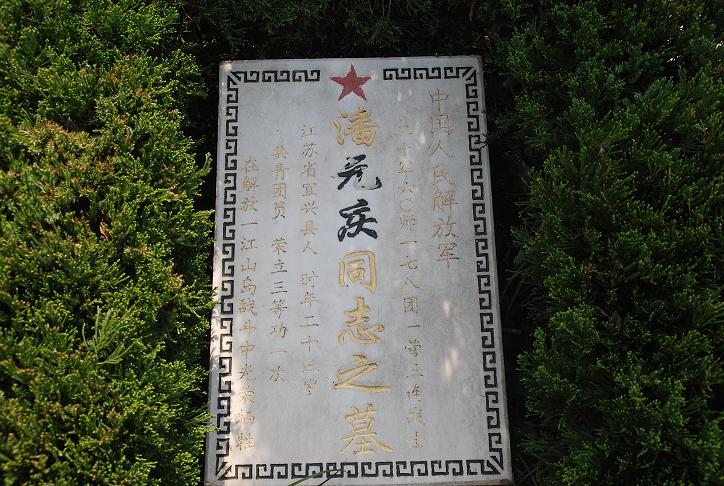 中国人民解放军
二十军六〇师一七八团一营三连战士
潘元庆同志之墓
江苏省宜兴县人 时年二十二岁
共青团员 荣立三等功一次
在解放一江山岛战斗中光荣牺牲